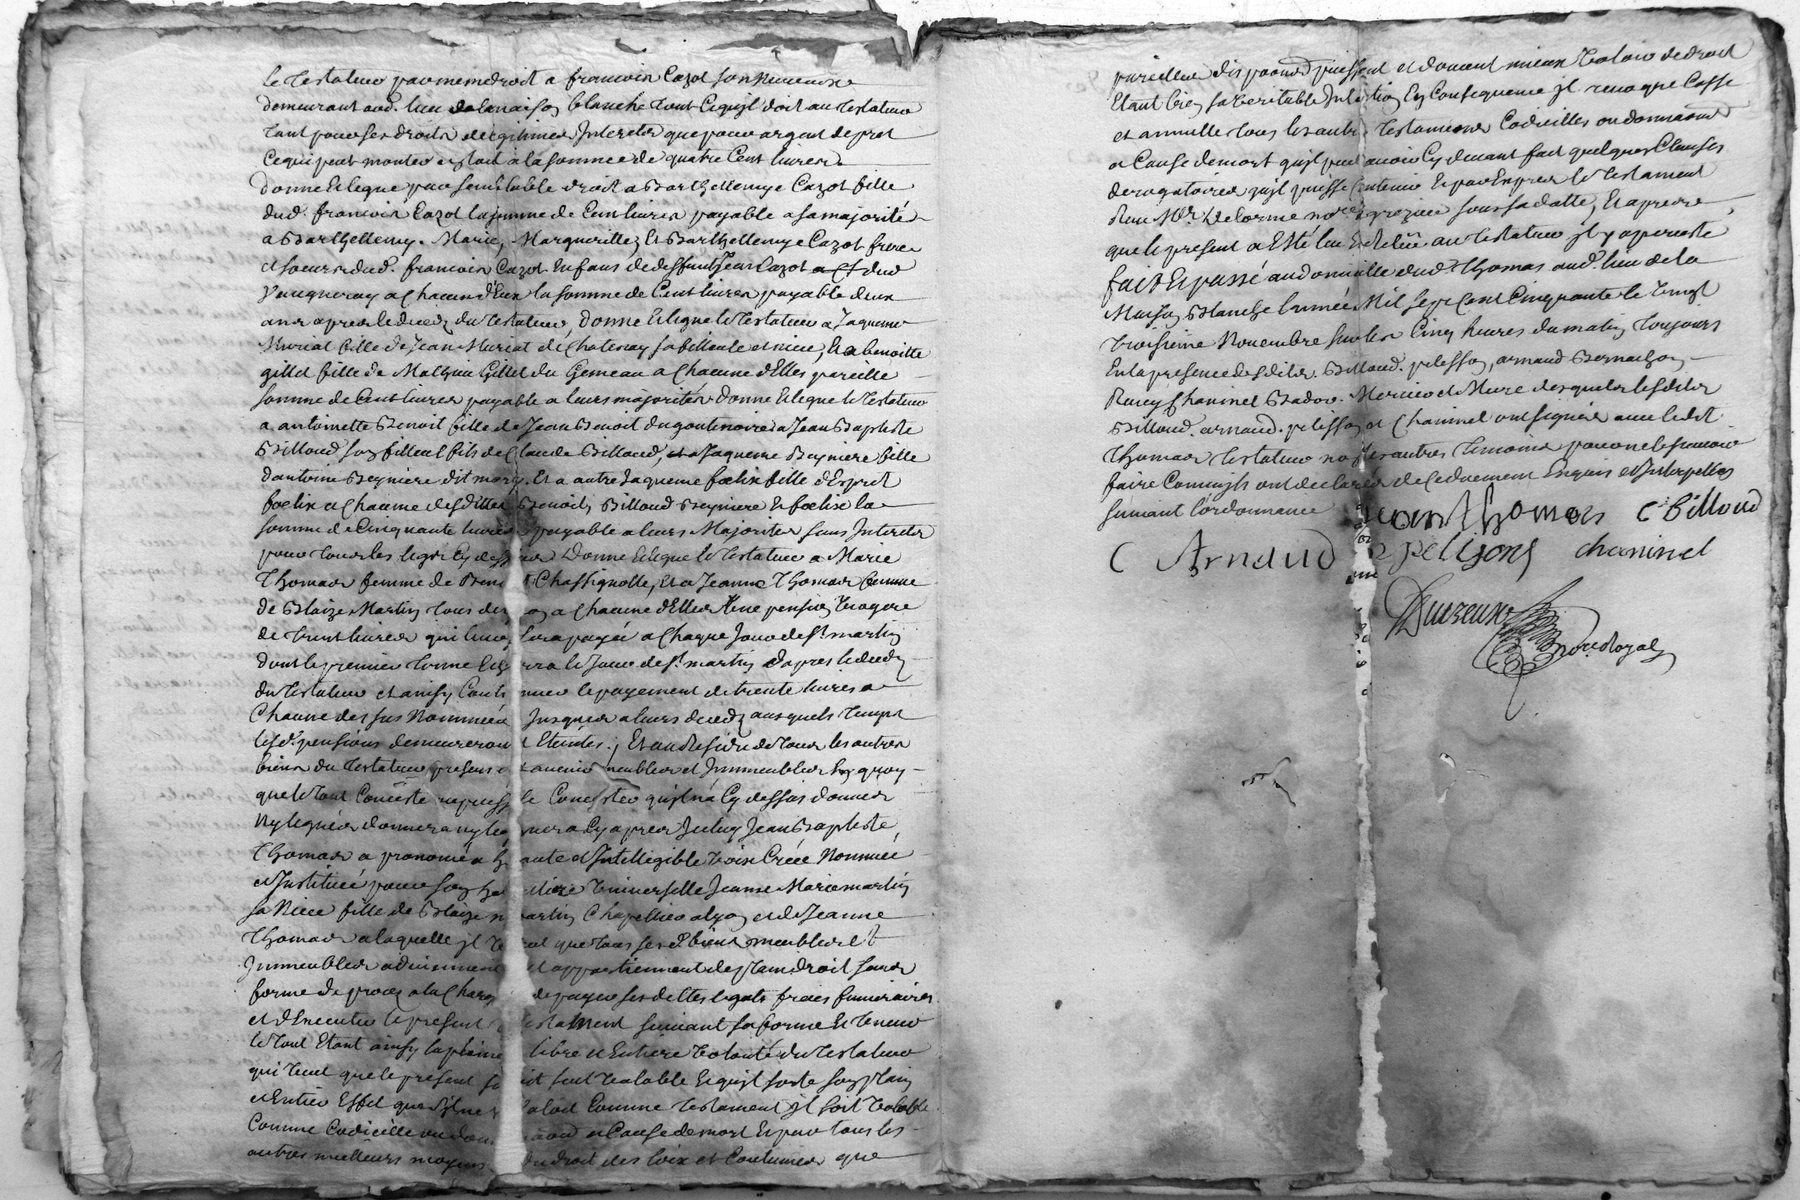 le Testateur par mesme droit a francois Cazot son neveu
demeurant aud. lieu de la maison blanche tout ce quil doit au Testateur
tant pour ses droits de legitimes Interets que pour argent de pret
ce qui peut monter a la somme de quatre Cent livres
donne et legue par semblable droit a Barthellemye Cazot fille
dud. francois Cazot la somme de Cent livres payable a sa majorité
a Barthellemy. Marie, Margueritte et Barthellemye Cazot frere
et soeurs dud. francois Cazot Enfans de deffunt Jean Cazot
Vaugneray a Chacun d'Eux la somme de Cent livres payable deux
ans apres le decez du Testateur, donne et legue le Testateur a Jaqueme
Muriat fille de Jean Muriat de Chatenay sa filleule et niece, Et a benoitte
gillet fille de Mathieu Gillet du Gemeau a Chacune d'Elles pareille
somme de Cent livres payable a leurs majorités donne et legue le Testateur
a antoinette Benoit fille de Jean Benoit du goutenoire a Jean Baptiste
Billoud son filleul fils de Claude Billoud, a Jaqueme Beyniere fille
d'antoine Beyniere dit Et a autre Jaqueme foelix fille d'Esprit
foelix a Chacune desdittes Benoit, Billoud Beyniere et foelix la
somme de Cinquante livres payable a leurs Majorites sans Interets
pour tous les legs Cy dessus Donne et legue le Testateur a Marie
Thomas femme de Benoit Chassignolle, et a Jeanne Thomas femme
de Blaize Martin tous de a Chacune d'Elles Une pension viagere
de trente livres qui leur sera payée a Chaque Jour de St. martin
dont le premier terme sera le Jour de St. martin d'apres le decez
du Testateur et ainsy Continuer le payement de trente livres a
Chacune des sus Nommées Jusques a leurs decez auxquels temps
lesd. pensions demeureront Eteintes; Et au Residu de tous les autres
biens du Testateur presens et avenir meubles et Immeubles En quoy
que le tout Consiste ou puisse Consister quil n'a Cy dessus donnes
Ny legués donnera ny leguera Cy apres Iceluy Jean Baptiste
Thomas a prononcé a haute et Intelligible voix Créée Nommée
et Instituée pour son heritiere Universelle Jeanne Marie martin
sa Niece fille de Blaize martin Chapellier a lyon et de Jeanne
Thomas a laquelle il veut que tous sesd. biens meubles et
Immeubles adviennent et appartiennent de plain droit sans
forme de procez a la Charge de payer ses dettes legats frais funeraires
et d'Executer le present testament suivant sa forme Et teneur
le tout Etant ainsy la pleine libre et Entiere Volonté du Testateur
qui veut que le present soit Valable Et quil sorte son plain
et Entier Effet que s'il ne valoit Comme Testament il soit Valable
Comme Codicille ou donnation a Cause de mort Et par tous les
autres meilleurs moyens du droit des loix et Coutumes que
pareilles dispositions puissent et doivent mieux Valoir de droit
Etant bien sa veritable Intention En Consequence il revoque Casse
et annulle tous les autres Testaments Codicilles ou donnations
a Cause de mort quil peut avoir Cy devant fait quelques Clauses
derogatoires quil puisse Contenir Et par Expres le Testament
Receu Me. Delorme nore. a grezieu sous sa datte, Et apres
que le present a Esté leu Et Releu au testateur il y a persisté
fait Et passé au domicille dud. Thomas aud. lieu de la
Maison Blanche l'année Mil sept Cent Cinquante le vingt
troisieme Novembre sur les Cinq heures du matin toujours
En la presence desdits. Billoud. pelisson, arnaud Bernachon
Rivery Chaninel Bador. Mercier et Mure desquels lesdits
Billoud. arnaud. pelisson et Chaninel ont signés avec ledit
Thomas testateur non les autres temoins pour ne le scavoir
faire Comm'ils ont declarés de Ce duement Enquis et Interpellés
suivant l'ordonnance jean thomas C billoud
C Arnaud pelison chaninel
Ducreux
nore. Royal